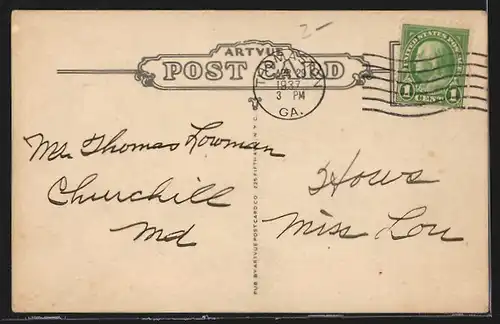 2-
ARTVUE
POST CARD
UNITED STATES POSTAGE
1 CENT 1
1937
3 PM
GA.
Mr. Thomas Lowman
Churchill
Md
Hows
Miss Lou
PUB BY ARTVUE POST CARD CO. 225 FIFTH AVE. N.Y.C.